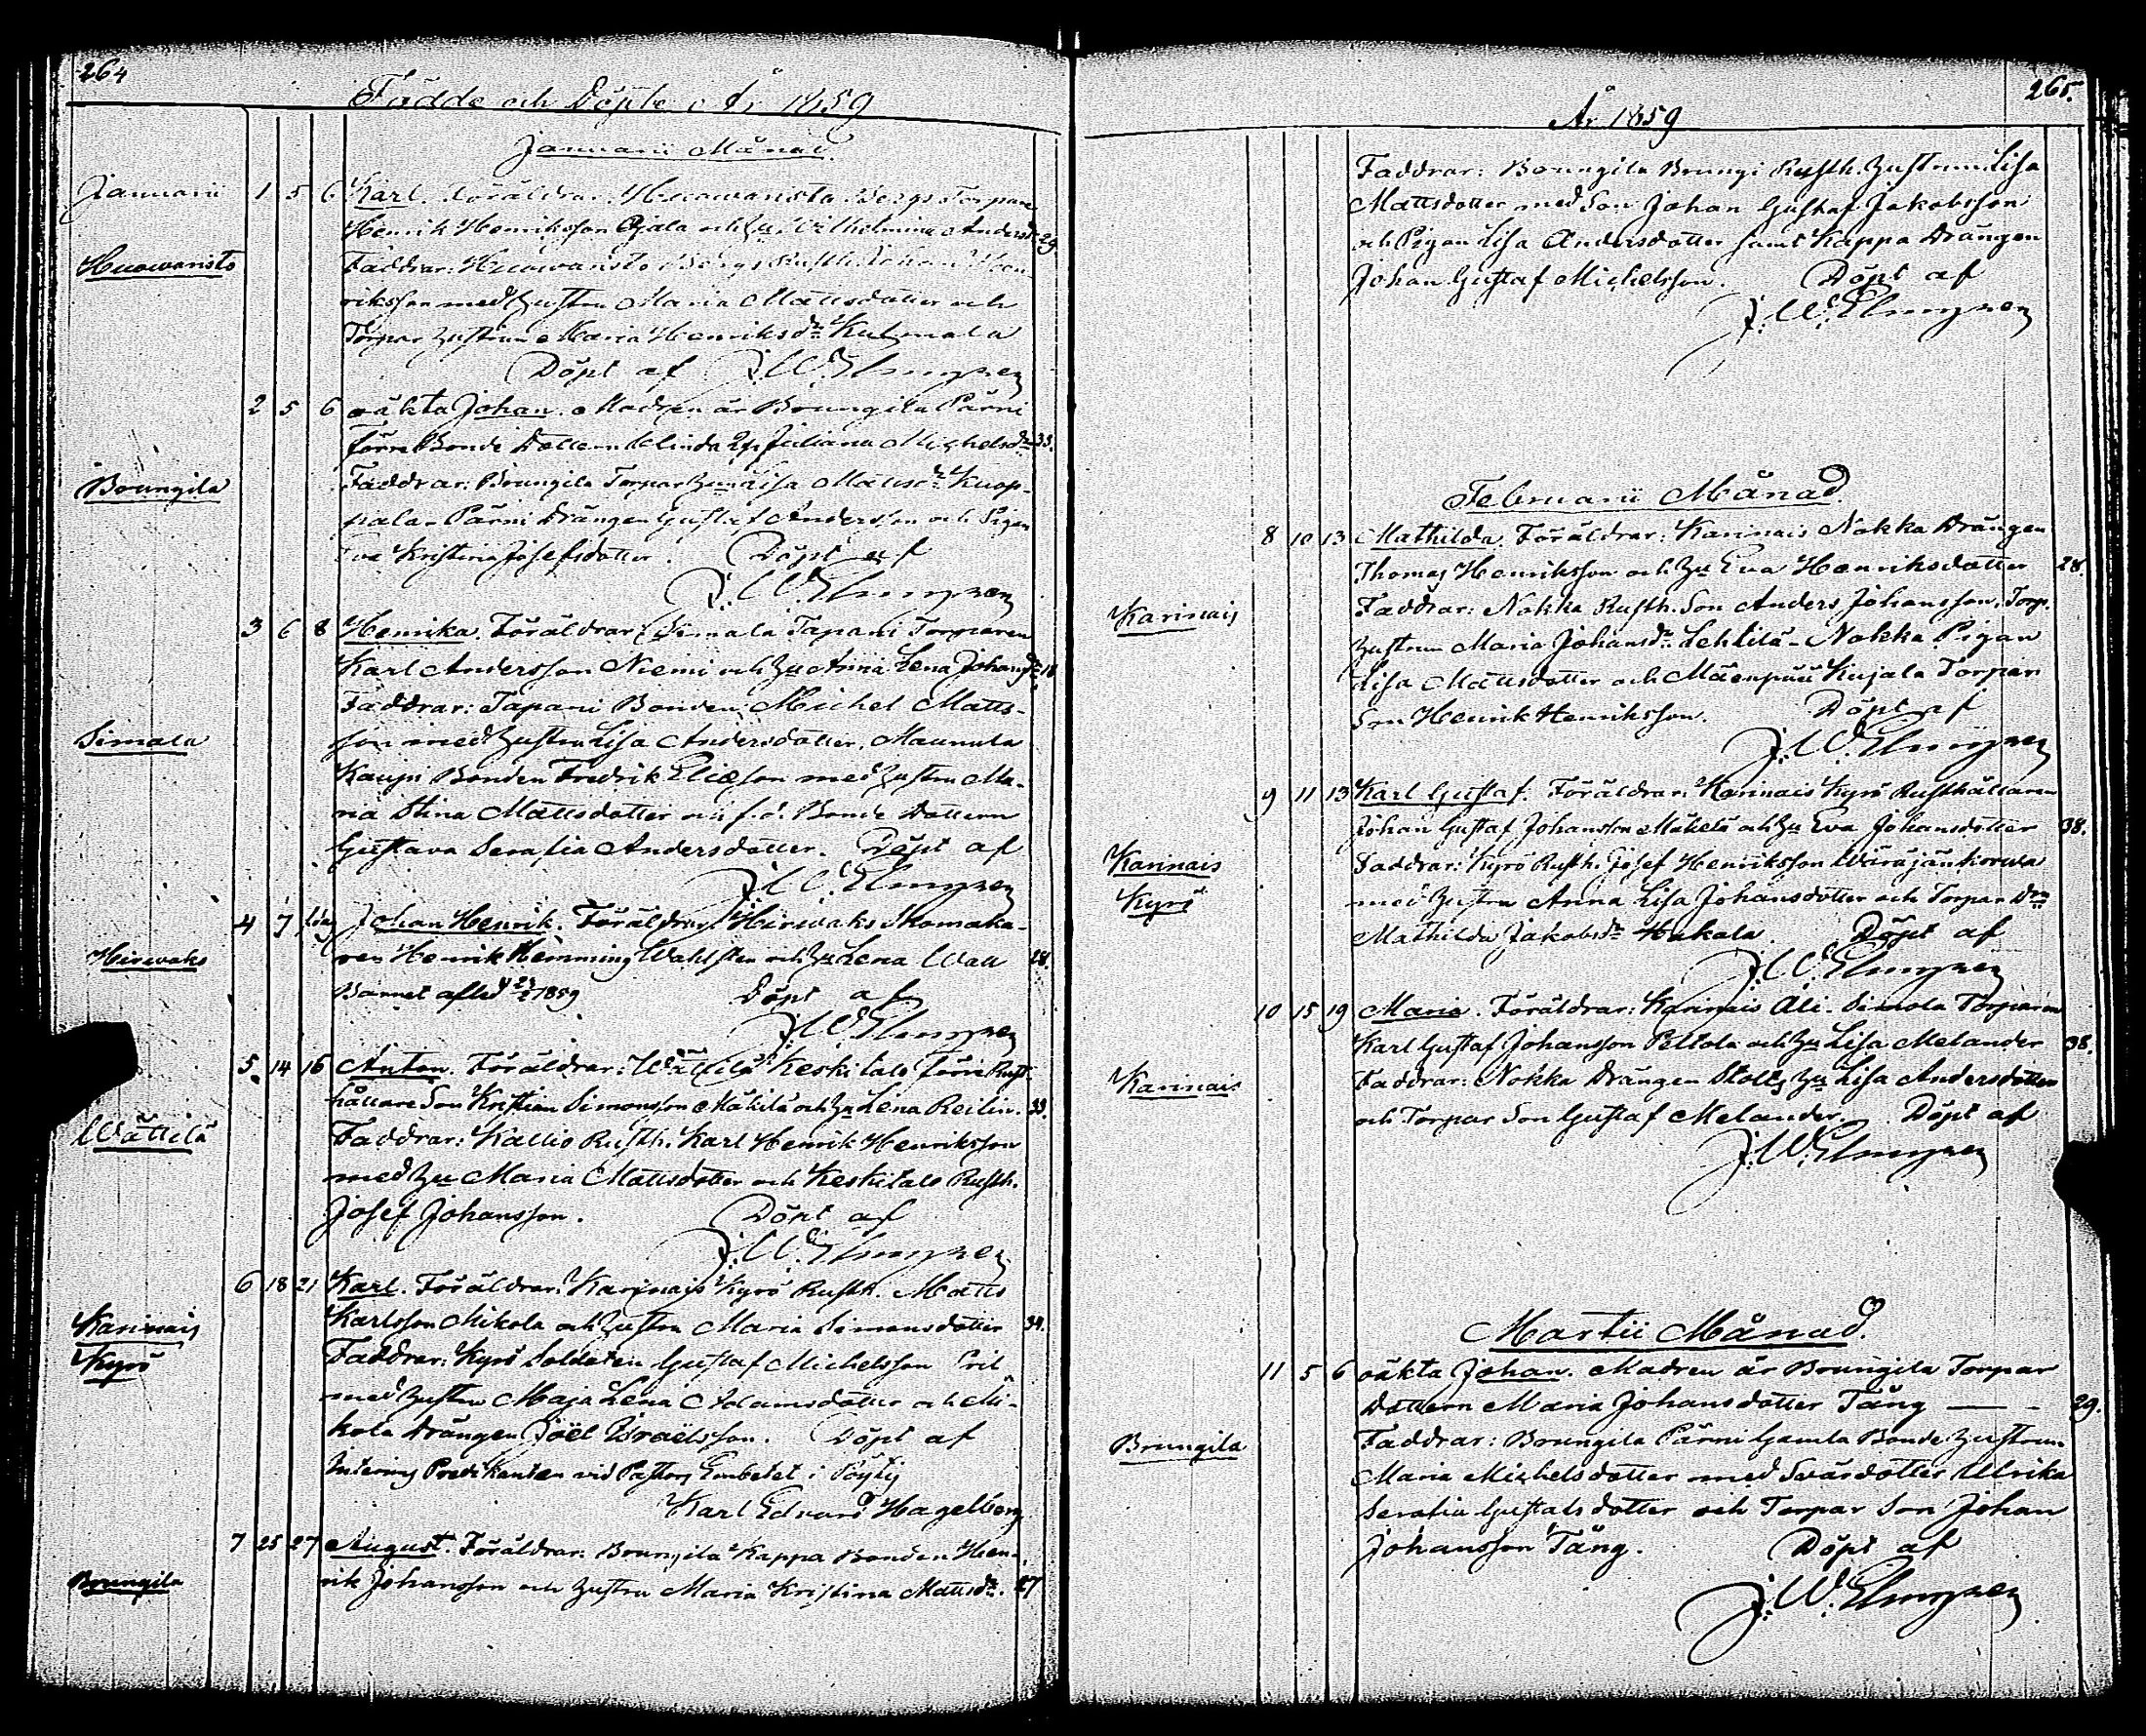 264
Födde och Döpte År 1859
Januarii Månad.
Januarii 1 5 6 Karl. Föräldrar: Huowanista Bergs Torparn
Henrik Henriksson Ojala och Hu Vilhelmina Andersdr 29.
Huowanisto Faddrar: Huowansto Bergs Rusth. Johan Hen-
riksson med Hustru Maria Mattsdotter och
Torpar Hustrun Maria Henriksdr Kulmala
Döpt af J. W. Elmgren
2 5 6 oäkta Johan. Modren är Brungila Pärni
förre Bonde Dottern Juliana Michelsdr 33.
Brungila Faddrar: Brungila Torpar Hun Lisa Mattsdr Kuop-
pala Pärni Drängen Gustaf Andersson och Pigan
Eva Kristina Josefsdotter. Döpt af
J. W. Elmgren
3 6 8 Henrika. Föräldrar: Simala Tapani Torparen
Karl Andersson Niemi och Hu Anna Lena Johansdr 18
Faddrar: Tapani Bonden Michel Matts-
Simala son med Hustru Lisa Andersdotter, Maunula
Kaupi Bonden Fredrik Eliæson med Hustru Ma-
ria Stina Mattsdotter och f.d. Bonde Dottern
Gustava Serafia Andersdotter. Döpt af
J. W. Elmgren
4 7 Johan Henrik. Föräldrar: Hirwoaks Skomaka-
Hirwoaks ren Henrik Hemming Wahlsten och Hu Lena Wall 28.
Barnet afled 1859 Döpt af
J. W. Elmgren
5. 14 16 Anton. Föräldrar: Wättilä Keskitalo förre Rust-
hållare Son Kristian Simonsson Mäkilä och Hu Lena Reilin. 33.
Wättilä Faddrar: Kallio Rusth. Karl Henrik Henriksson
med Hu Maria Mattsdotter och Keskitalo Rusth.
Josef Johansson. Döpt af
J. W. Elmgren
6 18 21 Karl. Föräldrar: Karinais Kyrö Rusth. Matts
Karinais Karlsson Mikola och Hustru Maria Simonsdotter 34.
Kyrö Faddrar: Kyrö Soldaten Gustaf Michelsson Pril
med Hustru Maja Lena Adamsdotter och Mi-
kola Drängen Joël Israëlsson. Döpt af
Interims Predikanten vid Pastors Embetet i Pöytis
Karl Edvard Hagelberg
7 25 27 August. Föräldrar: Brungila Kappa Bonden Hen-
Brungila rik Johansson och Hustru Maria Kristina Mattsdr. 27
265.
År 1859
Faddrar: Brungila Brungi Rusth. Hustrun Lisa
Mattsdotter med Son Johan Gustaf Jakobsson
och Pigan Lisa Andersdotter samt Kappa Drängen
Johan Gustaf Michelsson. Döpt af
J. W. Elmgren
Februarii Månad.
8 10 13 Mathilda. Föräldrar: Karinais Nokka Drängen
Thomas Henriksson och Hu Eva Henriksdotter 28.
Karinais Faddrar: Nokka Rusth. Son Anders Johansson, Torp.
Hustrun Maria Johansdr Lehtilä - Nokka Pigan
Lisa Mattsdotter och Mäenpää Kujala Torpar
Son Henrik Henriksson. Döpt af
J. W. Elmgren
9 11 13 Karl Gustaf. Föräldrar: Karinais Kyrö Rusthållaren
Johan Gustaf Johansson Mäkelä och Hu Eva Johansdotter 38.
Karinais Faddrar: Kyrö Rusth. Josef Henriksson Wäräjänkorwa
Kyrö med Hustru Anna Lisa Johansdotter och Torpar Drn
Mathilda Jakobsdr Hakala. Döpt af
J. W. Elmgren
10 15 19 Maria. Föräldrar: Karinais Ali-Simola Torparen
Karl Gustaf Johansson Peltola och Hu Lisa Melander 38.
Karinais Faddrar: Nokka Drängen Stolts Hu Lisa Andersdotter
och Torpar Son Gustaf Melander. Döpt af
J. W. Elmgren
Martii Månad.
11 5 6 oäkta Johan. Modren är Brungila Torpar
Dottern Maria Johansdotter Tång 29.
Brungila Faddrar: Brungila Pärni Gamla Bonde Hustrun
Maria Michelsdotter med Svärdotter Ulrika
Serafia Gustafsdotter och Torpar Son Johan
Johansson Tång. Döpt af
J. W. Elmgren